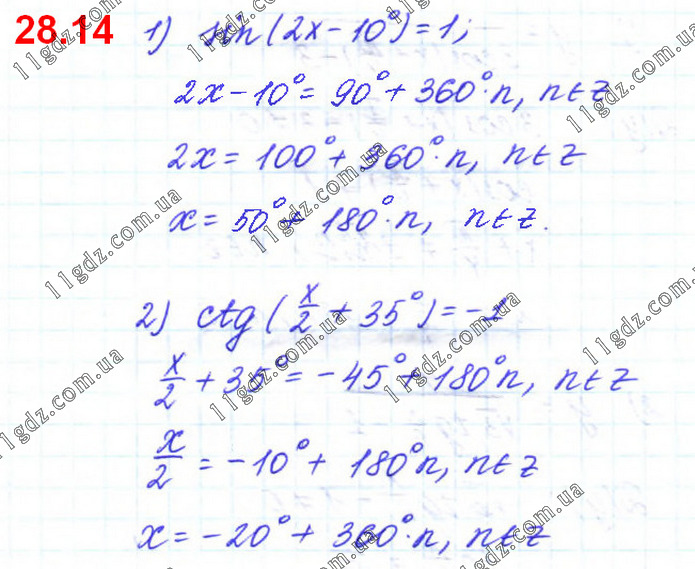 28.14
1) sin(2x-10°)=1;
2x-10°=90°+360°·n, n∈Z
2x=100°+360°·n, n∈Z
x=50°+180°·n, n∈Z.
2) ctg(x/2+35°)=-1
x/2+35°=-45°+180°n, n∈Z
x/2=-10°+180°n, n∈Z
x=-20°+360°·n, n∈Z
11gdz.com.ua
11gdz.com.ua
11gdz.com.ua
11gdz.com.ua
11gdz.com.ua
11gdz.com.ua
11gdz.com.ua
11gdz.com.ua
11gdz.com.ua
11gdz.com.ua
11gdz.com.ua
11gdz.com.ua